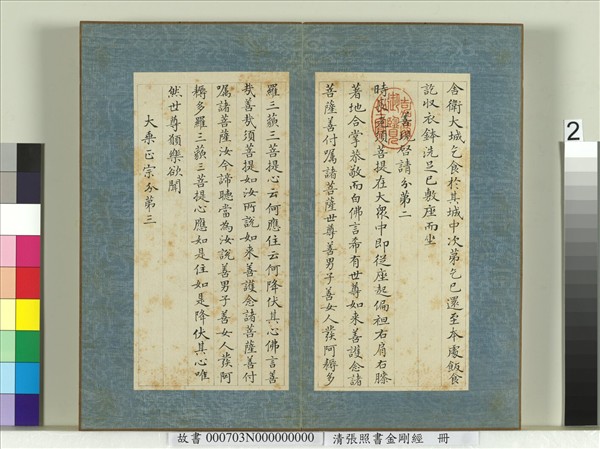 舍衛大城乞食於其城中次第乞已還至本處飯食
訖收衣鉢洗足已敷座而坐
善現啓請分第二
時長老須菩提在大衆中即從座起偏袒右肩右膝
著地合掌恭敬而白佛言希有世尊如来善護念諸
菩薩善付囑諸菩薩世尊善男子善女人發阿耨多
羅三藐三菩提心云何應住云何降伏其心佛言善
哉善哉須菩提如汝所說如来善護念諸菩薩善付
囑諸菩薩汝今諦聽當為汝說善男子善女人發阿
耨多羅三藐三菩提心應如是住如是降伏其心唯
然世尊願樂欲聞
大乗正宗分第三
2
故書 000703N000000000 清張照書金剛經 冊